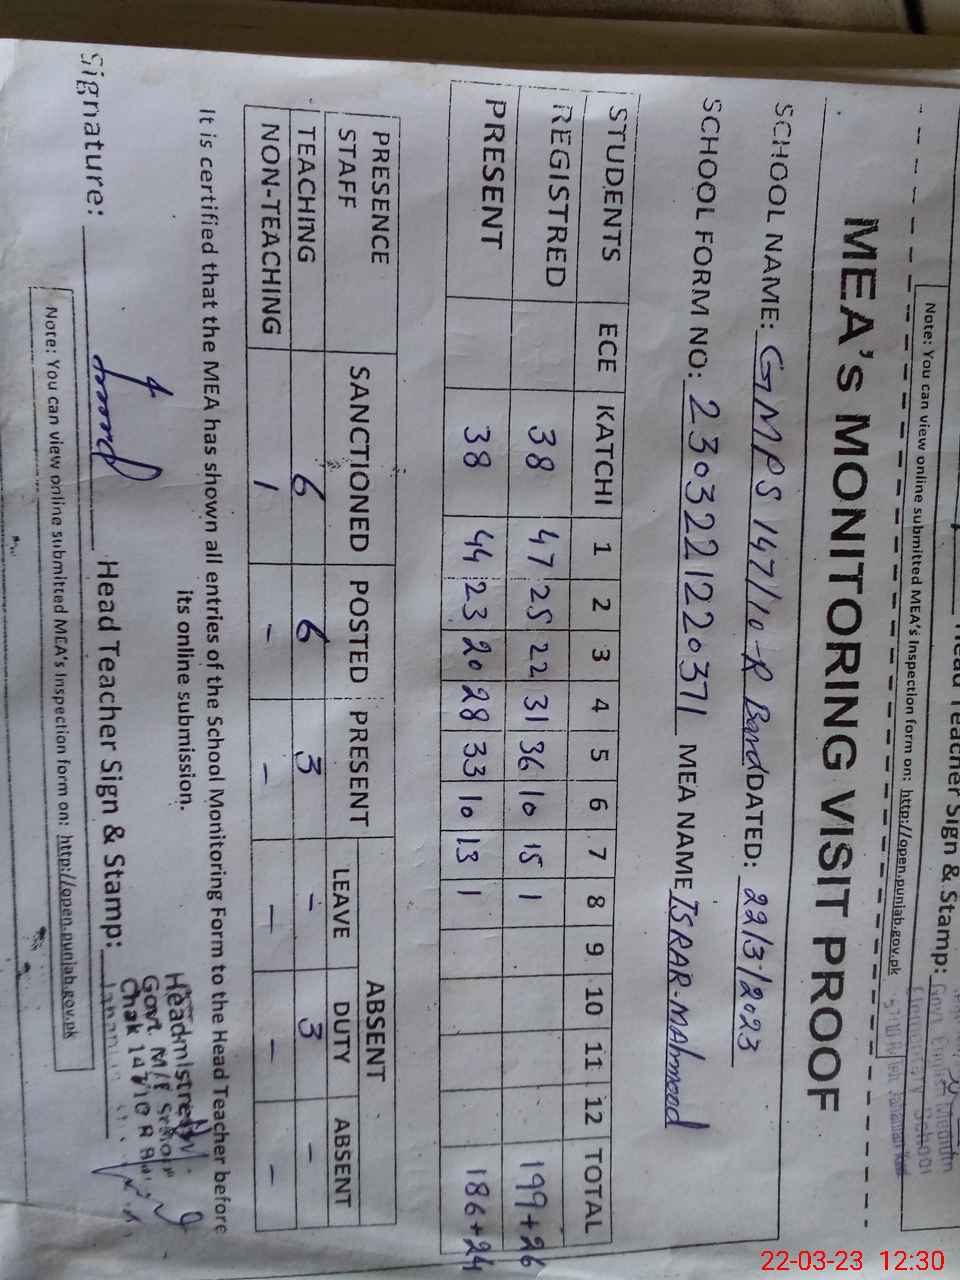 Head Teacher Sign & Stamp:
Note: You can view online submitted MEA's Inspection form on: http://open.punjab.gov.pk
MEA's MONITORING VISIT PROOF
SCHOOL NAME: GMPS 147/10-R Band DATED: 22/3/2023
SCHOOL FORM NO: 2303221220371 MEA NAME ISRAR-MAhmood
STUDENTS ECE KATCHI 1 2 3 4 5 6 7 8 9 10 11 12 TOTAL
REGISTRED 38 47 25 22 31 36 10 15 1 199+26
PRESENT 38 44 23 20 28 33 10 13 1 186+24
PRESENCE SANCTIONED POSTED PRESENT ABSENT
STAFF LEAVE DUTY ABSENT
TEACHING 6 6 3 - 3 -
NON-TEACHING 1 - - - - -
It is certified that the MEA has shown all entries of the School Monitoring Form to the Head Teacher before
its online submission.
Signature: Head Teacher Sign & Stamp:
Headmistress
Govt. M/E School
Chak 147/10 R
Note: You can view online submitted MEA's Inspection form on: http://open.punjab.gov.pk
22-03-23 12:30